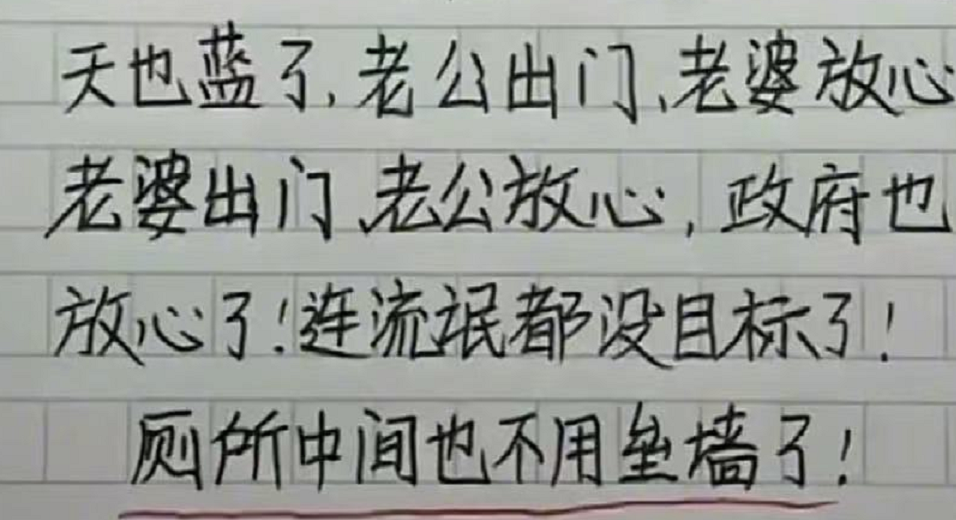 天也蓝了,老公出门、老婆放心
老婆出门、老公放心,政府也
放心了!连流氓都没目标了!
厕所中间也不用垒墙了!